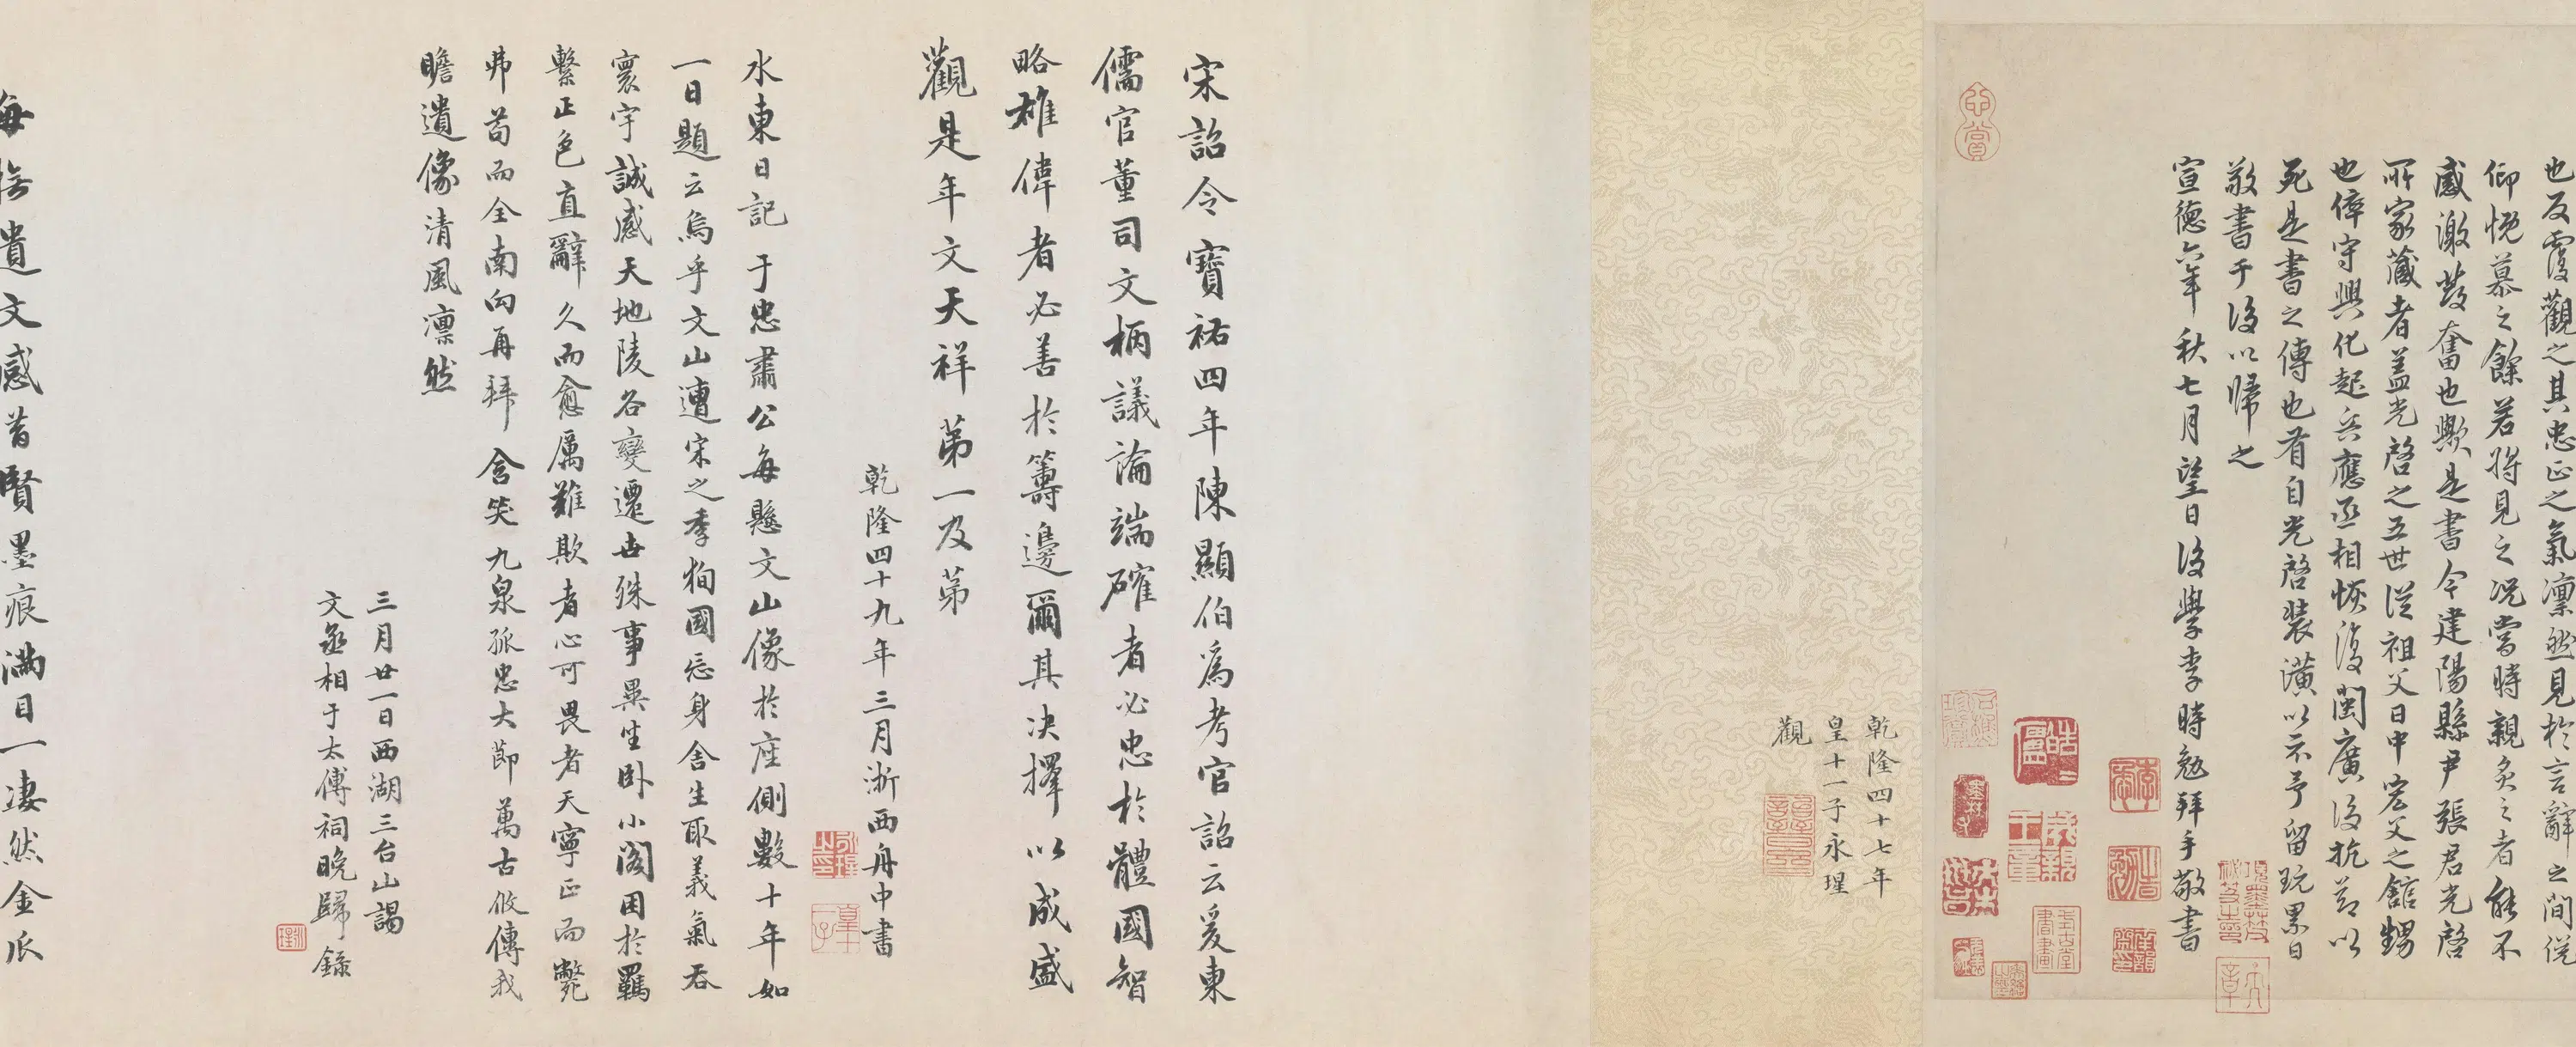 也反覆觀之其忠正之氣凜然見於言辭之間從
仰悅慕之餘若將見之況當時親炙之者能不
感激發奮也歟是書今建陽縣尹張君光啓
所家藏者蓋光啓之五世從祖父日中宏父之館甥
也倅守興化起兵應丞相恢復閩廣後抗節以
死是書之傳也有自光啓裝潢以示予留玩累日
敬書于後以歸之
宣德六年秋七月望日後學李時勉拜手敬書
乾隆四十七年
皇十一子永瑆
觀
宋詔令寶祐四年陳顯伯為考官詔云爰東
儒官董司文柄議論端確者必忠於體國智
略雄偉者必善於籌邊爾其決擇以成盛
觀是年文天祥第一及第
乾隆四十九年三月浙西舟中書
水東日記于忠肅公每懸文山像於座側數十年如
一日題云烏乎文山遭宋之季徇國忘身舍生取義氣吞
寰宇誠感天地陵谷變遷世殊事異坐臥小閣困於羈
繫正色直辭久而愈厲難欺者心可畏者天寧正而斃
弗苟而全南向再拜含笑九泉孤忠大節萬古攸傳我
瞻遺像清風凜然
三月廿一日西湖三台山謁
文丞相于太傅祠晚歸錄
海橋遺文感昔賢墨痕滿目一淒然金瓜